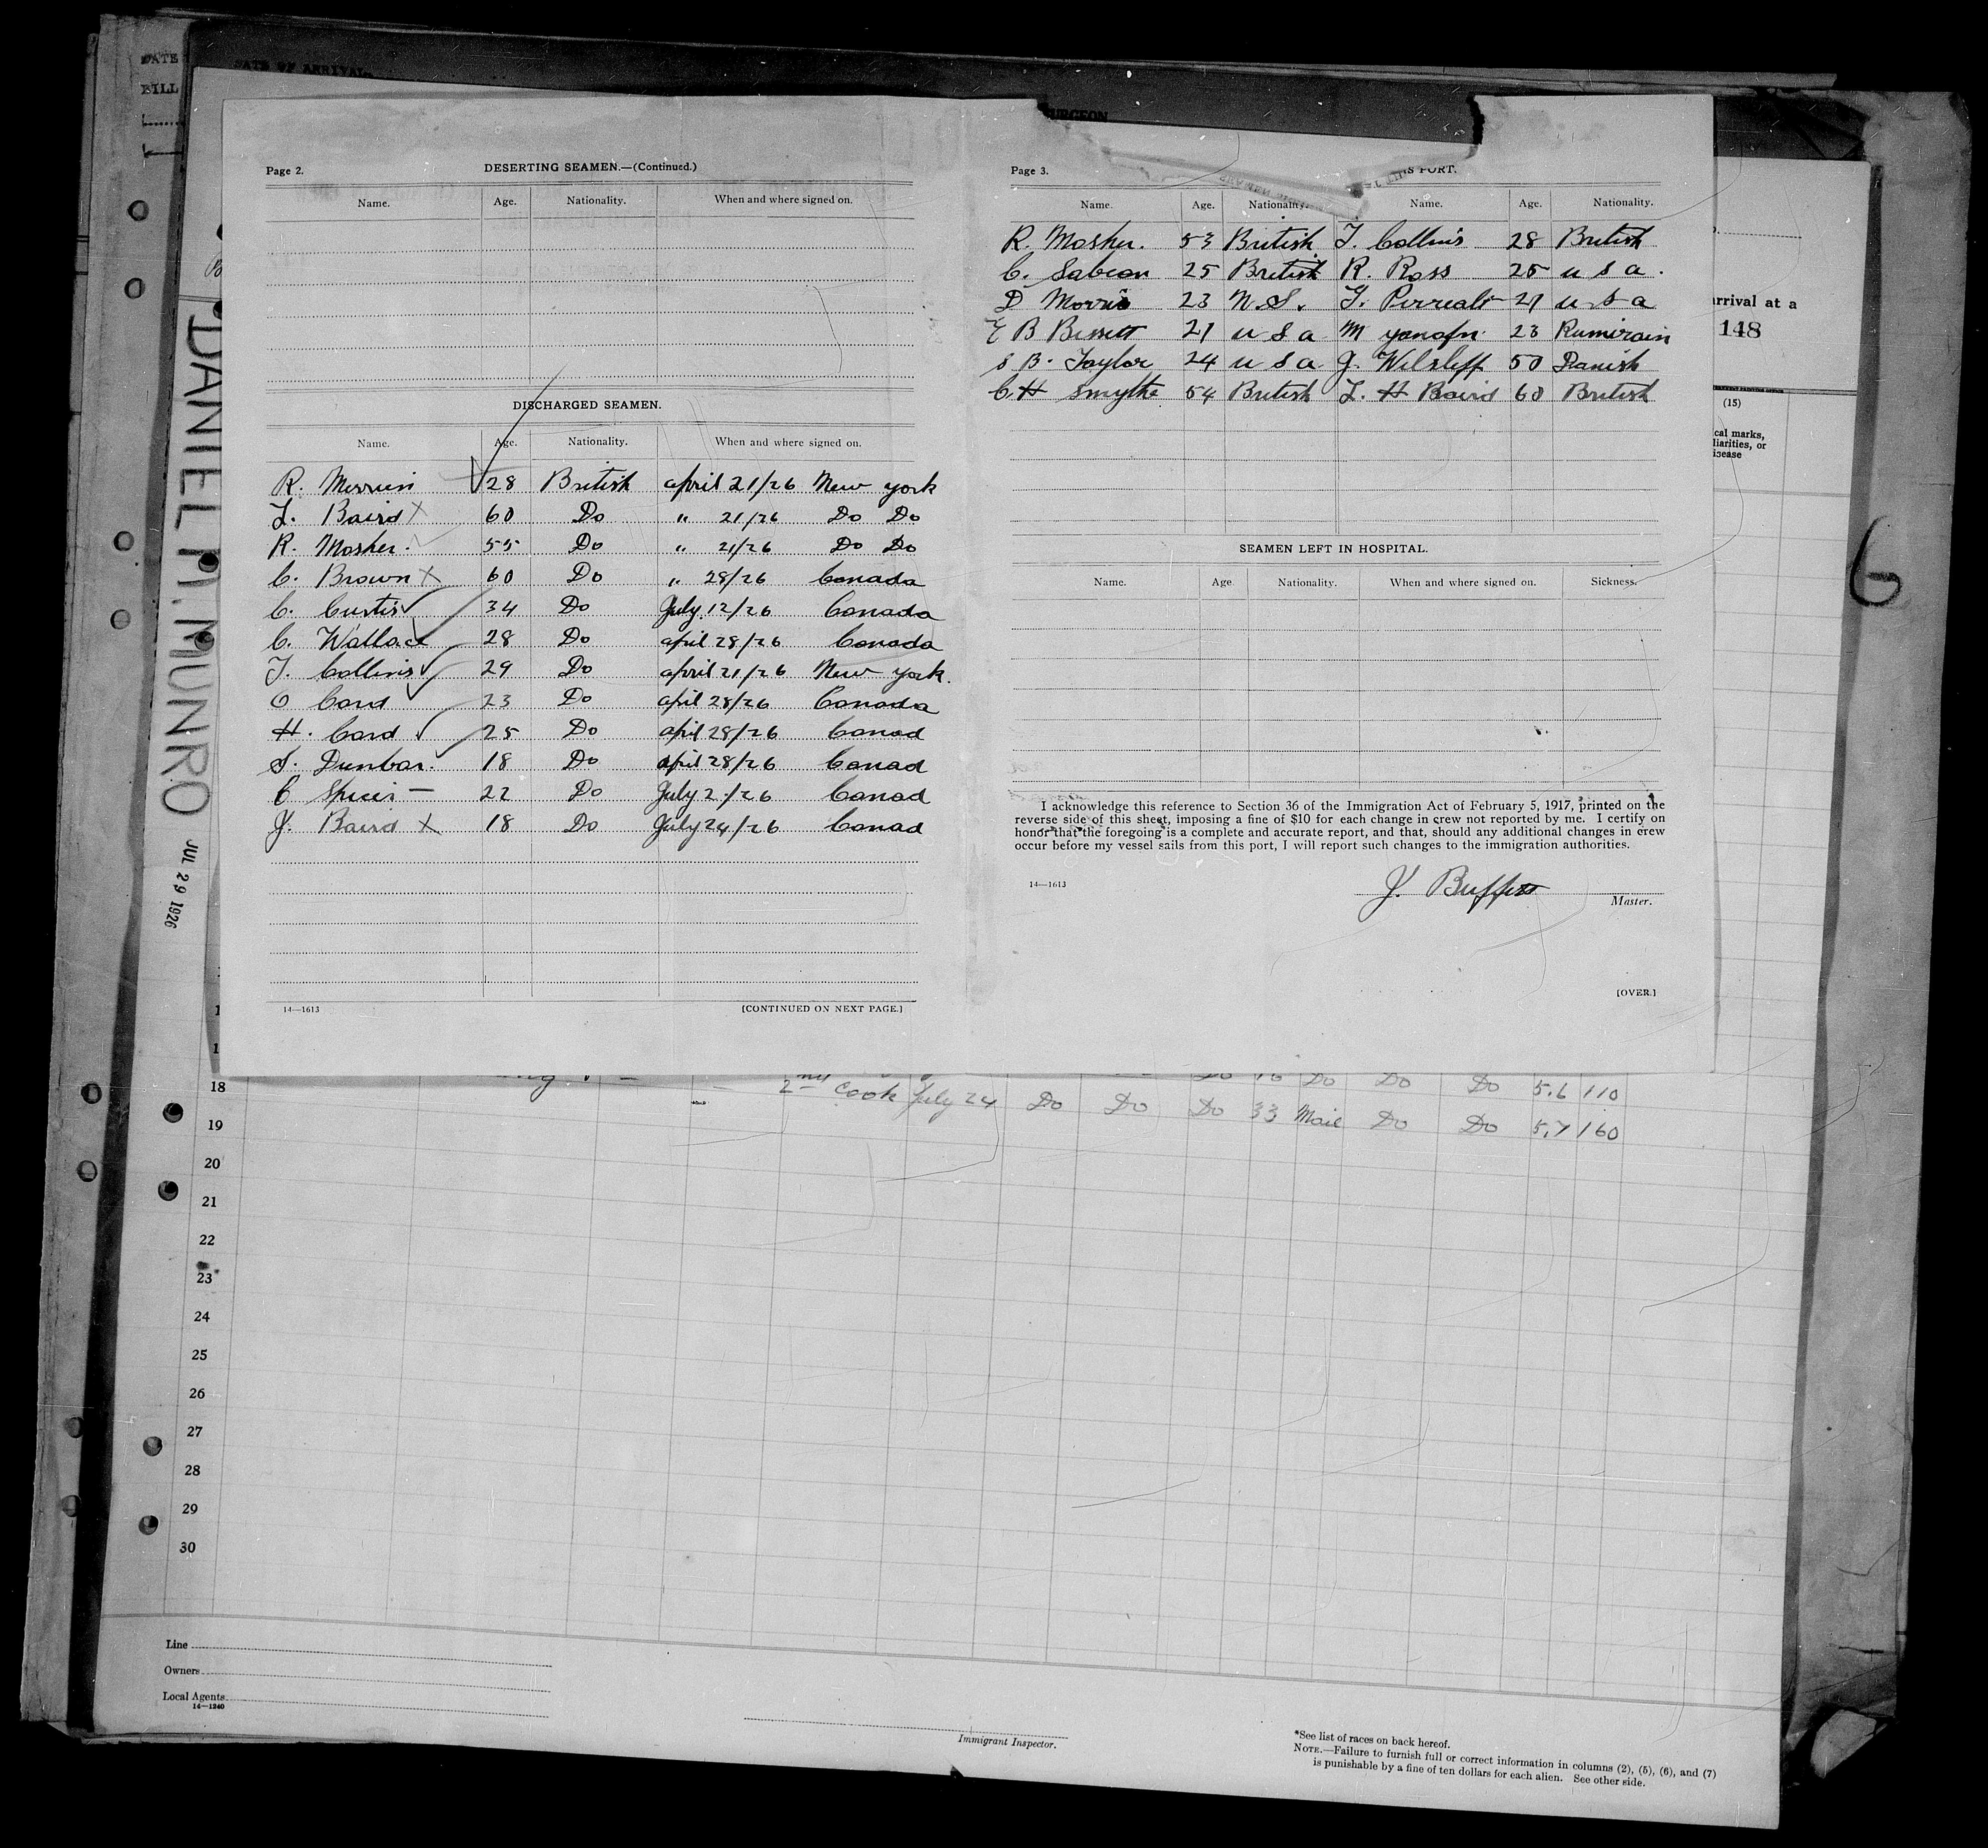 DATE
BILL
DATE OF ARRIVAL
DANIEL M. MUNRO
JUL 29 1926
Page 2.
DESERTING SEAMEN.—(Continued.)
Name. Age. Nationality. When and where signed on.
DISCHARGED SEAMEN.
Name. Age. Nationality. When and where signed on.
R. Merrien 28 British april 21/26 New york
L. Baird X 60 Do " 21/26 Do Do
R. Mosher. 55 Do " 21/26 Do Do
C. Brown X 60 Do " 28/26 Canada
C. Curtis 34 Do July 12/26 Canada
C. Wallace 28 Do april 28/26 Canada
T. Collins 29 Do april 21/26 New york.
O Card 23 Do april 28/26 Canada
H. Card 25 Do april 28/26 Canad
S. Dunbar. 18 Do april 28/26 Canad
C Spicer — 22 Do July 2/26 Canad
J. Baird X 18 Do July 24/26 Canad
14—1613
[CONTINUED ON NEXT PAGE.]
SURGEON
Page 3.
IS PORT.
Name. Age. Nationality. Name. Age. Nationality.
R. Mosher. 53 British T. Collins 28 British
C. Sabean 25 British R. Ross 25 u s a.
D Morris 23 N.S. 21 u s a
E B Bissett 21 u s a M 23
S B. Taylor 24 u s a J. 50 Danish
C. H Smythe 54 British L. H Baird 60 British
SEAMEN LEFT IN HOSPITAL.
Name. Age Nationality. When and where signed on. Sickness.
I acknowledge this reference to Section 36 of the Immigration Act of February 5, 1917, printed on the
reverse side of this sheet, imposing a fine of $10 for each change in crew not reported by me. I certify on
honor that the foregoing is a complete and accurate report, and that, should any additional changes in crew
occur before my vessel sails from this port, I will report such changes to the immigration authorities.
14—1613
J. Buffett
Master.
[OVER.]
arrival at a
148
(15)
cal marks,
liarities, or
isease
6
18 Do 16 Do Do Do 5.6 110
19 2nd Cook July 24 Do Do Do 33 Mail Do Do 5.7 160
20
21
22
23
24
25
26
27
28
29
30
Line
Owners
Local Agents
14—1240
Immigrant Inspector.
*See list of races on back hereof.
NOTE.—Failure to furnish full or correct information in columns (2), (5), (6), and (7)
is punishable by a fine of ten dollars for each alien. See other side.